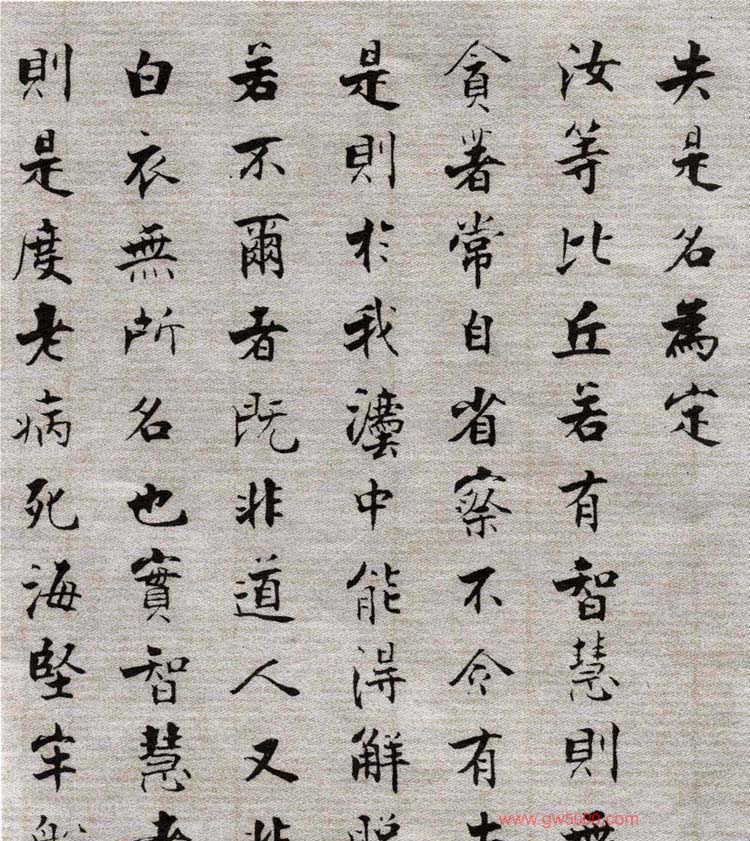 失是名為定
汝等比丘若有智慧則無
貪著常自省察不令有失
是則於我灋中能得解脫
若不爾者既非道人又非
白衣無所名也實智慧者
則是度老病死海堅牢船
www.gw5000.com